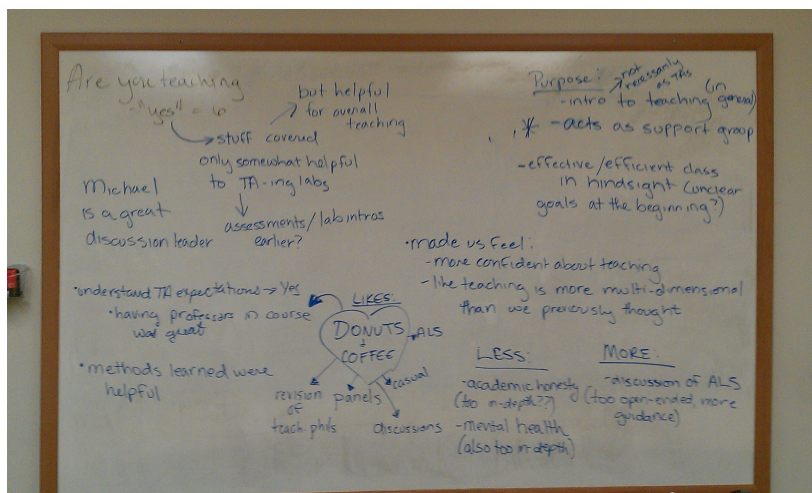 Are you teaching
- "yes" = 6
stuff covered
only somewhat helpful
to TA-ing labs
but helpful
for overall
teaching
assessments/lab intros
earlier?
Michael
is a great
discussion leader
Purpose:
not
necessarily
as TAs
- intro to teaching (in
general)
* - acts as support group
- effective/efficient class
in hindsight (unclear
goals at the beginning?)
• made us feel:
- more confident about teaching
- like teaching is more multi-dimensional
than we previously thought
• understand TA expectations → Yes
• having professors in course
was great
• methods learned were
helpful
LIKES:
DONUTS
+
COFFEE
ALS
casual
discussions
panels
revision
of
teach. phils
LESS:
- academic honesty
(too in-depth??)
- mental health
(also too in-depth)
MORE:
- discussion of ALS
(too open-ended, more
guidance)